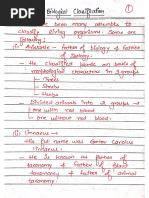 Biological Classification
①
been many attempts to
classify living organisms. Some are
following:
(i) Aristotle – father of biology & father
of zoology.
– He classified plants on basis
of morphological characters in 3 groups
→ Trees
→ Shrubs
→ Herbs
– Divided animals into 2 groups
→ one with red blood
→ one without red blood.
(ii) Linnaeus :-
– His full name was Carlon Carolus
Linnaeus.
– He is known as father of
taxonomy & father of plant
taxonomy & father of animal
taxonomy.